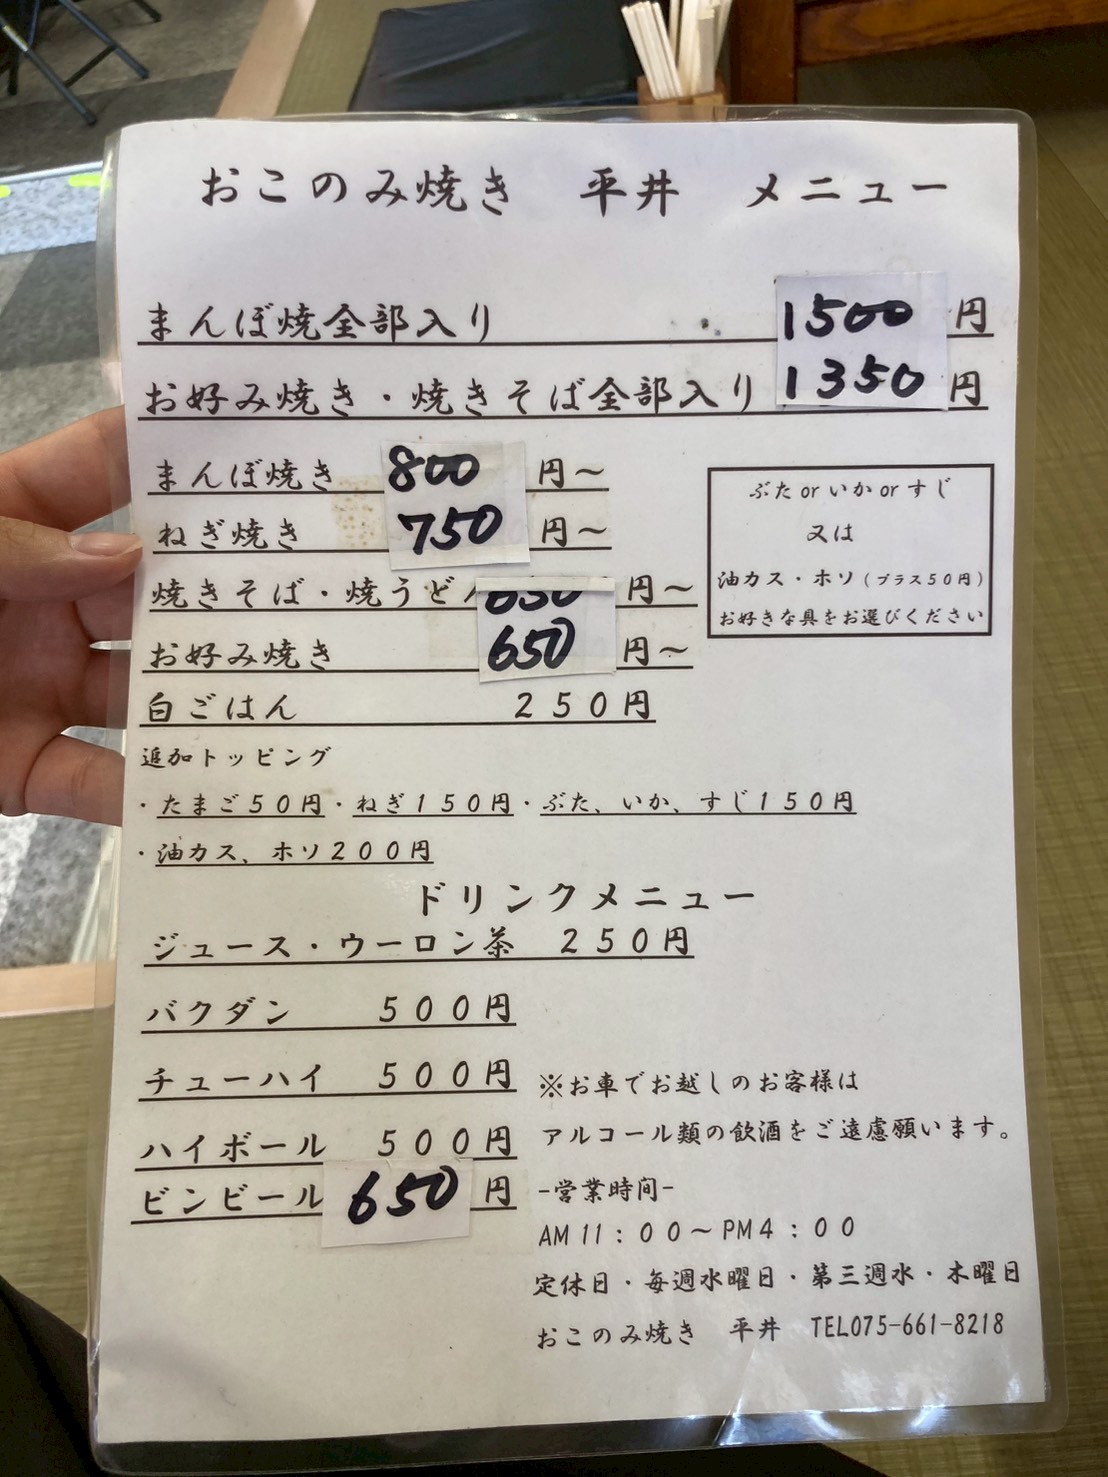 おこのみ焼き 平井 メニュー
まんぼ焼全部入り 1500円
お好み焼き・焼きそば全部入り 1350円
まんぼ焼き 800円～
ねぎ焼き 750円～
焼きそば・焼うどん 650円～
お好み焼き 650円～
白ごはん 250円
ぶた or いか or すじ
又は
油カス・ホソ（プラス50円）
お好きな具をお選びください
追加トッピング
・たまご50円・ねぎ150円・ぶた、いか、すじ150円
・油カス、ホソ200円
ドリンクメニュー
ジュース・ウーロン茶 250円
バクダン 500円
チューハイ 500円
ハイボール 500円
ビンビール 650円
※お車でお越しのお客様は
アルコール類の飲酒をご遠慮願います。
-営業時間-
AM 11：00～PM4：00
定休日・毎週水曜日・第三週水・木曜日
おこのみ焼き 平井 TEL075-661-8218